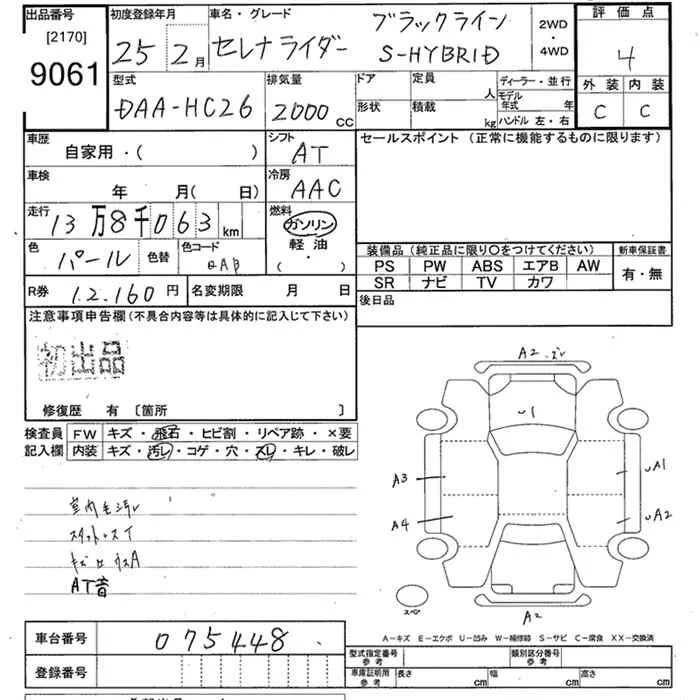 出品番号
[2170]
9061
初度登録年月
25 2月
車名・グレード
セレナライダー
ブラックライン
S-HYBRID
2WD
・
4WD
評価点
4
外装 内装
C C
型式
DAA-HC26
排気量
2000 CC
ドア
形状
定員
人
積載
kg
ディーラー・並行
モデル年式 年
ハンドル 左・右
車歴
自家用・( )
シフト
AT
セールスポイント (正常に機能するものに限ります)
車検
年 月( 日)
冷房
AAC
走行
13万8千063 km
燃料
ガソリン
軽油
( ・ )
色
パール
色替
色コード
QAB
装備品 (純正品に限り○をつけてください)
PS PW ABS エアB AW
SR ナビ TV カワ
新車保証書
有・無
R券
12,160円
名変期限 月 日
後日品
注意事項申告欄 (不具合内容等は具体的に記入して下さい)
初出品
修復歴 有 〔箇所 〕
検査員
記入欄
FW キズ・飛石・ヒビ割・リペア跡・×要
内装 キズ・汚レ・コゲ・穴・スレ・キレ・破レ
AT音
A2
A3
A4
A1
A2
A2
スペア
A-キズ E-エクボ U-凹み W-補修跡 S-サビ C-腐食 XX-交換済
車台番号
075448
登録番号
型式指定番号
参考
類別区分番号
参考
車庫証明用
参考
長さ 幅 高さ